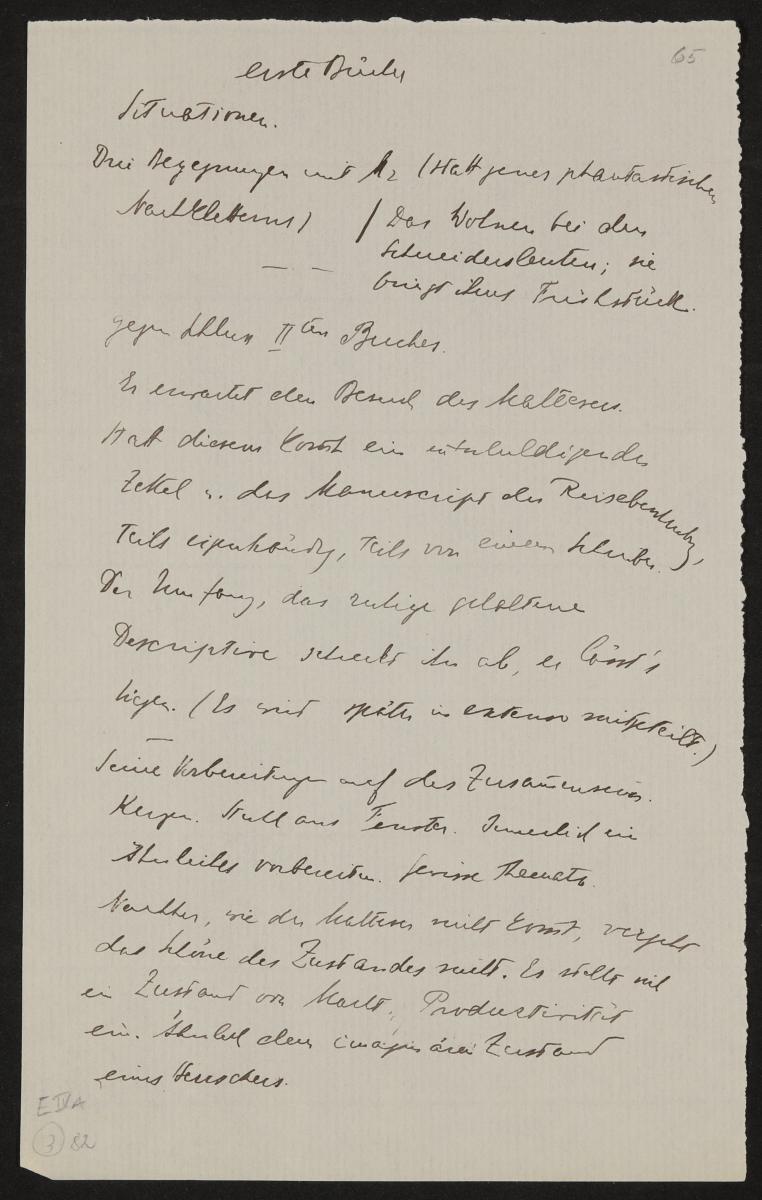 65
erste Bücher
Situationen.
Drei Begegnungen mit Nz (statt jenes phantastischen
Nachtkletterns) / Das Wohnen bei den
Schneidersleuten; sie
bringt ihm Frühstück.
gegen Schluss IIten Buches.
Er erwartet den Besuch des Maltesers.
Statt diesem kommt ein entschuldigender
Zettel u. das Manuscript der Reisebeschreibg,
teils eigenhändig, teils von einem Schreiber.)
Der Umfang, das ruhige gehaltene
Descriptive schreckt ihn ab, er lässt's
liegen. (Es wird später in extenso mitgeteilt.)
Seine Vorbereitungen auf das Zusam̄ensein.
Kerzen. Stuhl ans Fenster. Innerlich ein
Ähnliches vorbereiten. Gewisse Themata.
Nachher, wie der Malteser nicht kommt, vergeht
das Schöne des Zustandes nicht. Es stellt sich
ein Zustand von Macht, Productivität
ein. Ähnlich dem imaginären Zustand
eines Herrschers.
E IV A
3 82